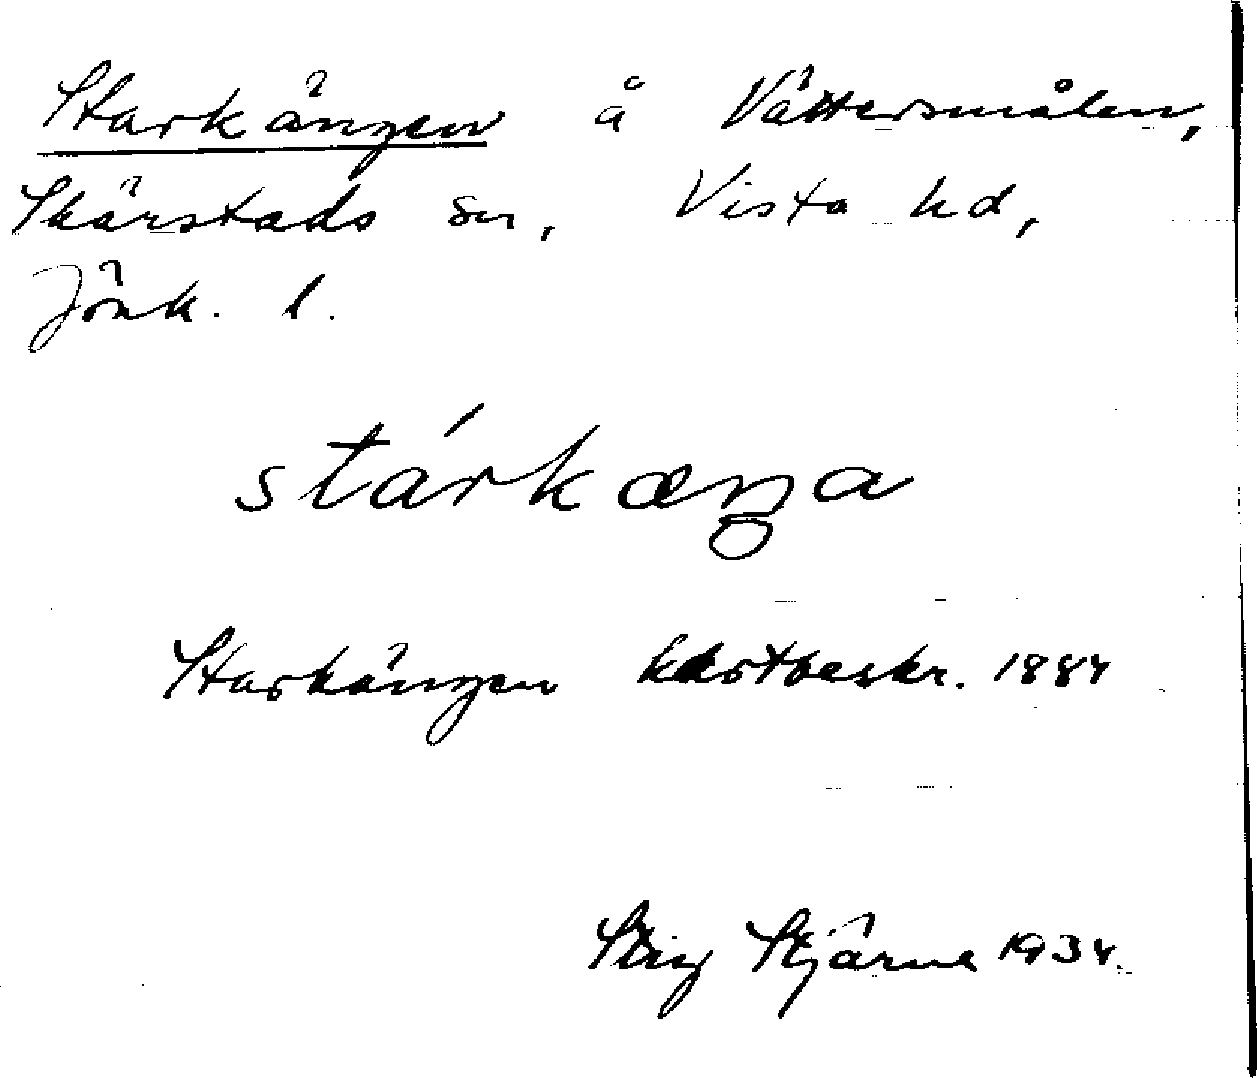 Starkängen å Vättersmålen,
Skärstads sn, Vista hd,
Jönk. l.
stárkæŋa
Starkängen kartbeskr. 1884
Stig Stjärne 1934.